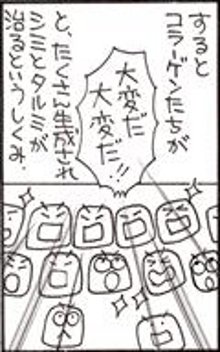 すると
コラーゲンたちが
大変だ
大変だ!!
と、たくさん生成され
シミとタルミが
治るというしくみ.